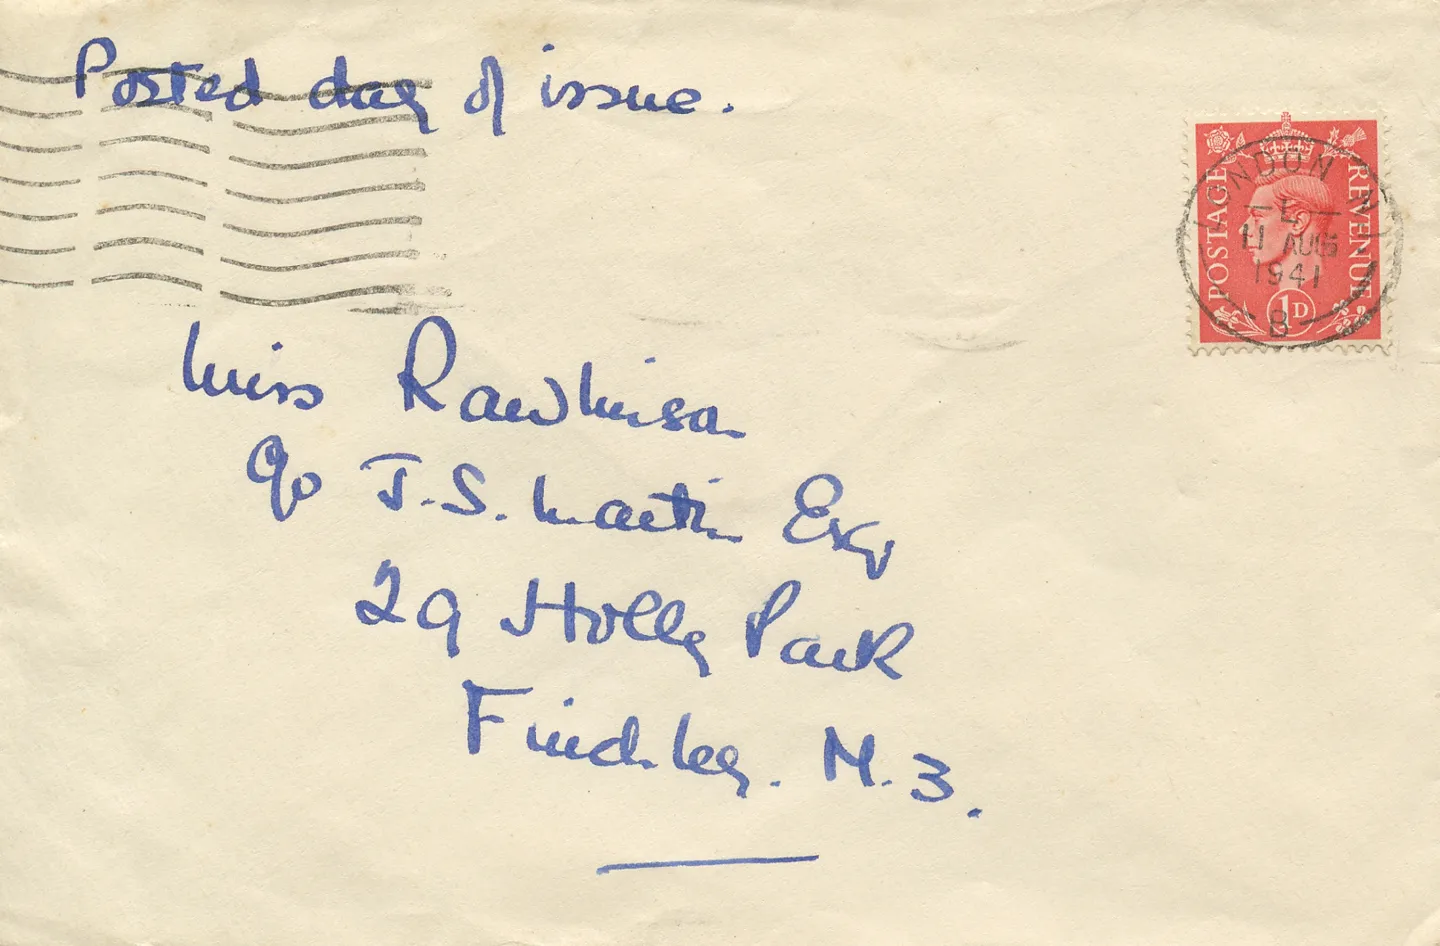 Posted day of issue.
POSTAGE REVENUE
1D
LONDON
L
11 AUG
1941
B
Miss Rawlinson
c/o J.S. Martin Esq
29 Holly Park
Finchley. N.3.